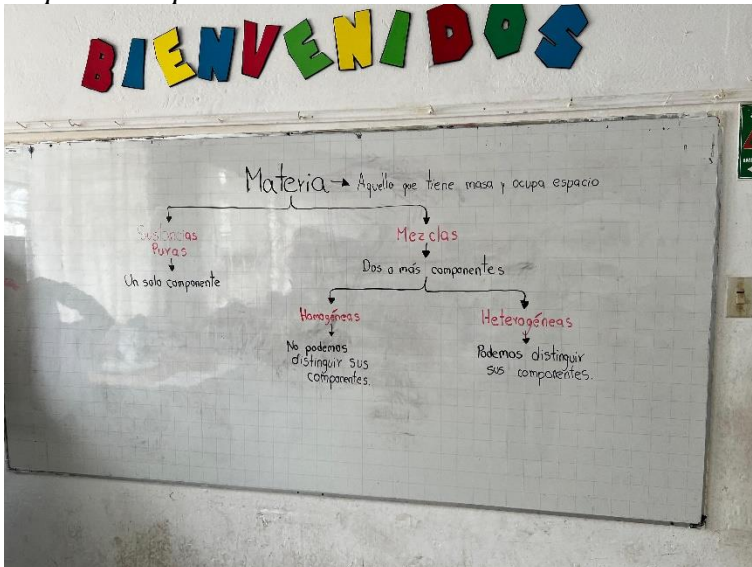 BIENVENIDOS
Materia → Aquello que tiene masa y ocupa espacio
Sustancias
Puras
Un solo componente
Mezclas
Dos o más componentes
Homogéneas
No podemos
distinguir sus
componentes.
Heterogéneas
Podemos distinguir
sus componentes.